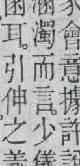 會意據許
溷濁而言少儀
耳。引伸之義